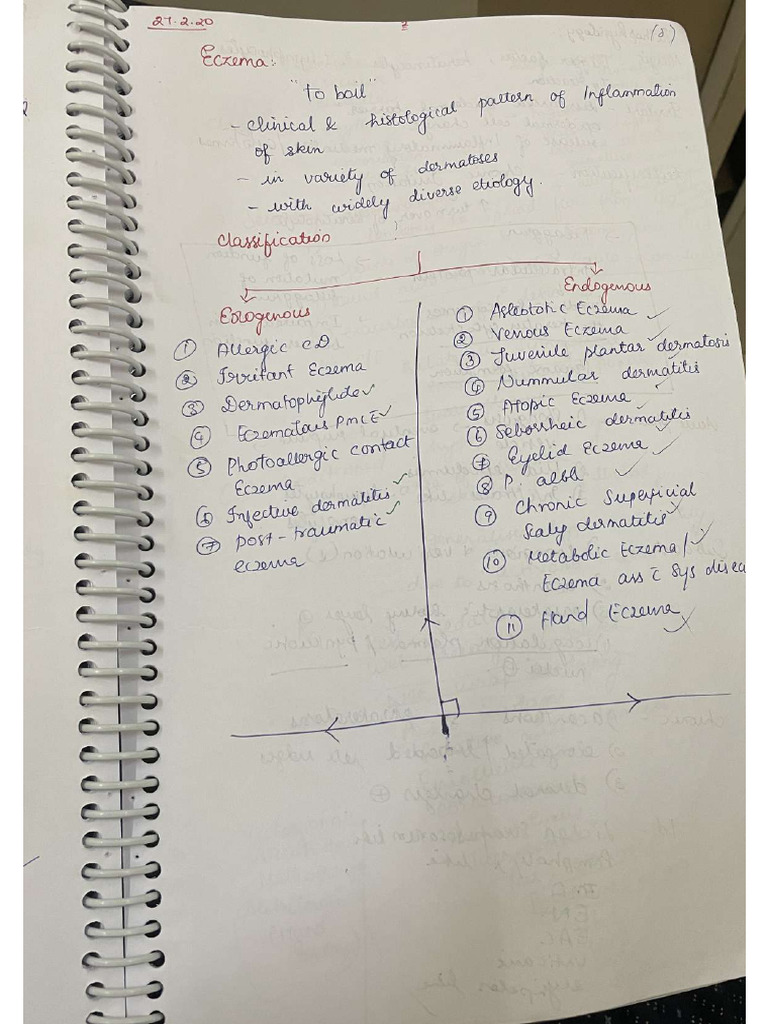 27.2.20
(8)
Eczema:
"To boil"
- clinical & histological pattern of Inflammation
of skin
- in variety of dermatoses
- with widely diverse etiology.
Classification
Exogenous
① Allergic CD
② Irritant Eczema
③ Dermatophytide ✓
④ Eczematous PMLE ✓
⑤ Photoallergic contact
Eczema
⑥ Infective dermatitis ✓
⑦ Post-traumatic ✓
eczema
Endogenous
① Asteototic Eczema ✓
② Venous Eczema
③ Juvenile plantar dermatosis
④ Nummular dermatitis
⑤ Atopic Eczema ✓
⑥ Seborrheic dermatitis
⑦ Eyelid Eczema ✓
⑧ P. alba ✓
⑨ Chronic Superficial
Scaly dermatitis ✓
⑩ Metabolic Eczema / ✓
Eczema ass c̄ Sys disea
⑪ Hand Eczema